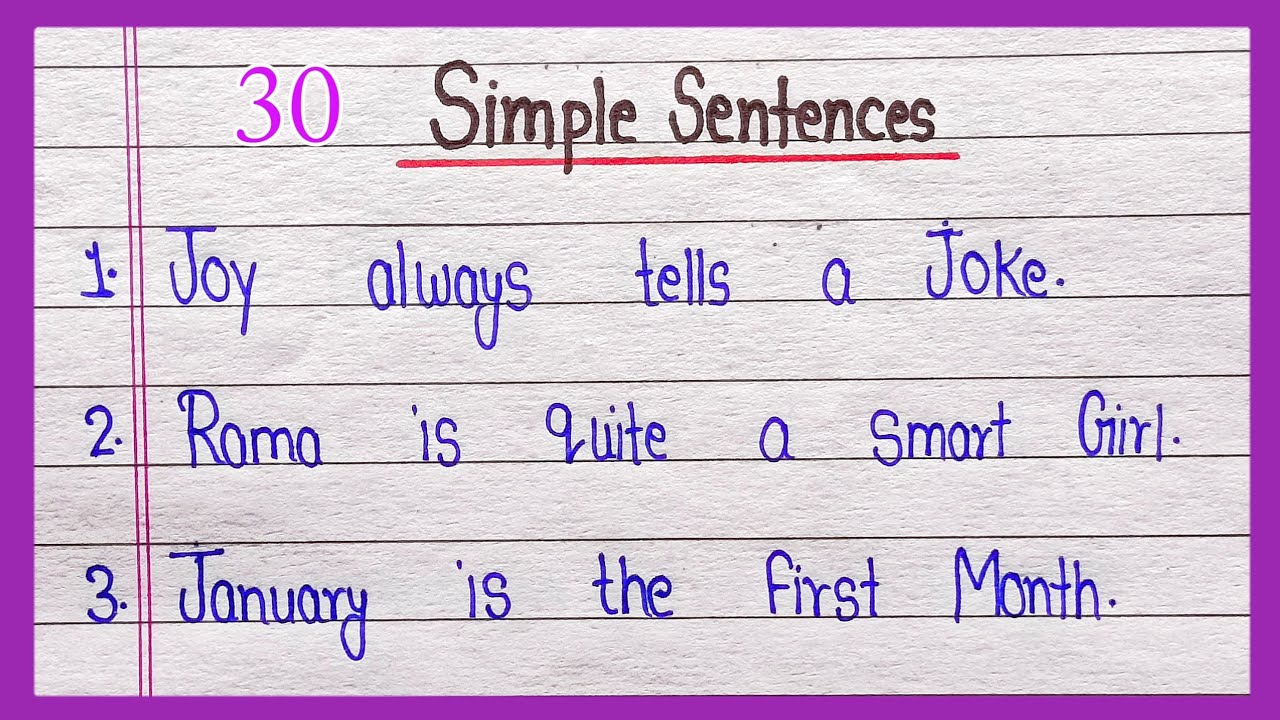 30 Simple Sentences
1. Joy always tells a Joke.
2. Rama is quite a smart Girl.
3. January is the first Month.